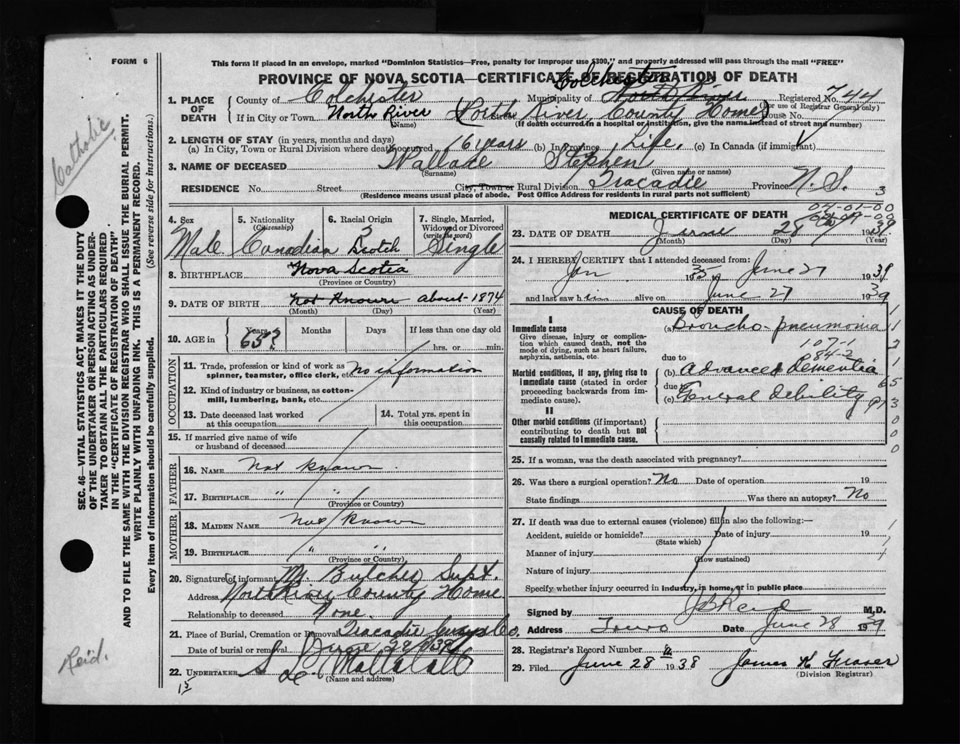 FORM 6
This form if placed in an envelope, marked "Dominion Statistics—Free, penalty for improper use $300," and properly addressed will pass through the mail "FREE"
PROVINCE OF NOVA SCOTIA—CERTIFICATE OF REGISTRATION OF DEATH
Catholic
1. PLACE OF DEATH
County of Colchester Municipality of Colchester Registered No. 744
(For use of Registrar General only)
If in City or Town North River (Name) North River County Home
(If death occurred in a hospital or institution, give the name instead of street and number)
2. LENGTH OF STAY (in years, months and days)
(a) In City, Town or Rural Division where death occurred 16 years (b) In Province Life (c) In Canada (if immigrant)
3. NAME OF DECEASED Wallace Stephen
(Surname) (Given name or names)
RESIDENCE No. Street City, Town or Rural Division Tracadie Province N.S. 3
(Residence means usual place of abode. Post Office Address for residents in rural parts not sufficient)
4. Sex Male
5. Nationality (Citizenship) Canadian
6. Racial Origin Scotch 3
7. Single, Married, Widowed or Divorced (write the word) Single
8. BIRTHPLACE Nova Scotia
(Province or Country)
9. DATE OF BIRTH not known about 1874
(Month) (Day) (Year)
10. AGE in Years 65? Months Days If less than one day old
hrs. or min.
OCCUPATION
11. Trade, profession or kind of work as spinner, teamster, office clerk, etc. No information
12. Kind of industry or business, as cotton-mill, lumbering, bank, etc.
13. Date deceased last worked at this occupation
14. Total yrs. spent in this occupation
15. If married give name of wife or husband of deceased
FATHER
16. NAME Not known
17. BIRTHPLACE " "
(Province or Country)
MOTHER
18. MAIDEN NAME Not known
19. BIRTHPLACE " "
(Province or Country)
20. Signature of informant Supt.
Address North River County Home
Relationship to deceased None
21. Place of Burial, Cremation or Removal Tracadie Guysboro Co.
Date of burial or removal June 29
22. UNDERTAKER
(Name and address)
15
MEDICAL CERTIFICATE OF DEATH
04-01-00
23. DATE OF DEATH June 28 1939
(Month) (Day) (Year)
24. I HEREBY CERTIFY that I attended deceased from:
Jan 35 to June 27 1939
and last saw him alive on June 27 1939
CAUSE OF DEATH
I
Immediate cause
Give disease, injury or complication which caused death, not the mode of dying, such as heart failure, asphyxia, asthenia, etc.
(a) Broncho-pneumonia
107-1
84-2
due to
(b) Advanced dementia
due to
(c) General debility
Morbid conditions, if any, giving rise to immediate cause (stated in order proceeding backwards from immediate cause).
II
Other morbid conditions (if important) contributing to death but not causally related to immediate cause.
25. If a woman, was the death associated with pregnancy?
26. Was there a surgical operation? No Date of operation 19
State findings Was there an autopsy? No
27. If death was due to external causes (violence) fill in also the following:—
Accident, suicide or homicide? Date of injury 19
(State which)
Manner of injury
(How sustained)
Nature of injury
Specify whether injury occurred in industry, in home, or in public place
Signed by J B Reid M.D.
Address Truro Date June 28 1939
28. Registrar's Record Number
29. Filed June 28 1938 James H Fraser
(Division Registrar)
SEC. 46—VITAL STATISTICS ACT MAKES IT THE DUTY OF THE UNDERTAKER OR PERSON ACTING AS UNDERTAKER TO OBTAIN ALL THE PARTICULARS REQUIRED IN THE "CERTIFICATE OF REGISTRATION OF DEATH"
AND TO FILE THE SAME WITH THE DIVISION REGISTRAR WHO SHALL ISSUE THE BURIAL PERMIT.
WRITE PLAINLY WITH UNFADING INK. THIS IS A PERMANENT RECORD.
Every item of information should be carefully supplied. (See reverse side for instructions.)
Reid.